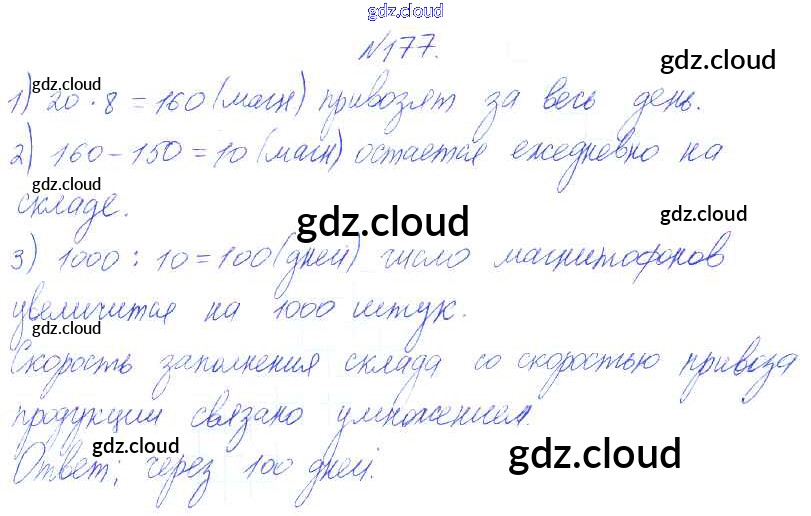 gdz.cloud
№177.
gdz.cloud
gdz.cloud
1) 20 · 8 = 160 (магн) привозят за весь день.
gdz.cloud
2) 160 - 150 = 10 (магн) остается ежедневно на
gdz.cloud
gdz.cloud
gdz.cloud
складе.
3) 1000 : 10 = 100 (дней) число магнитофонов
увеличится на 1000 штук.
gdz.cloud
gdz.cloud
Скорость заполнения склада со скоростью привоза
продукции связано умножением.
gdz.cloud
gdz.cloud
Ответ; через 100 дней.